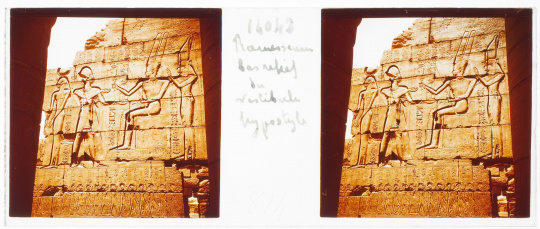 14042
Ramesseum
bas relief
du
vestibule
hypostyle